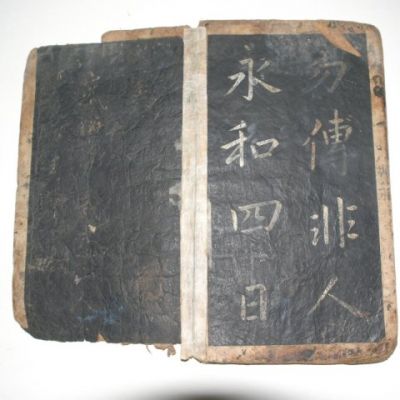 勿傳非人
永和四日